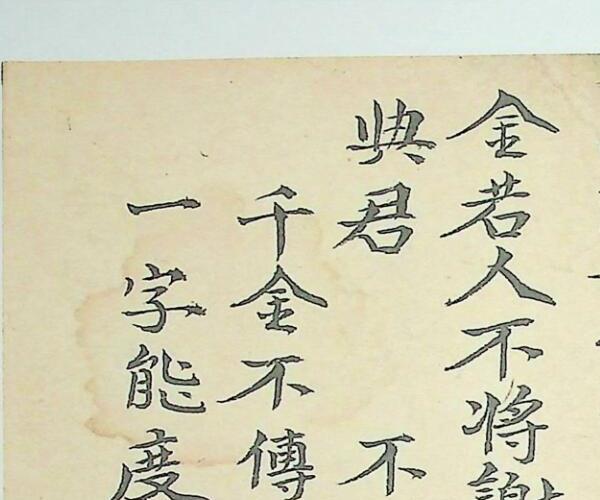 金若人不將謝
君 不
千金不傳
一字能度